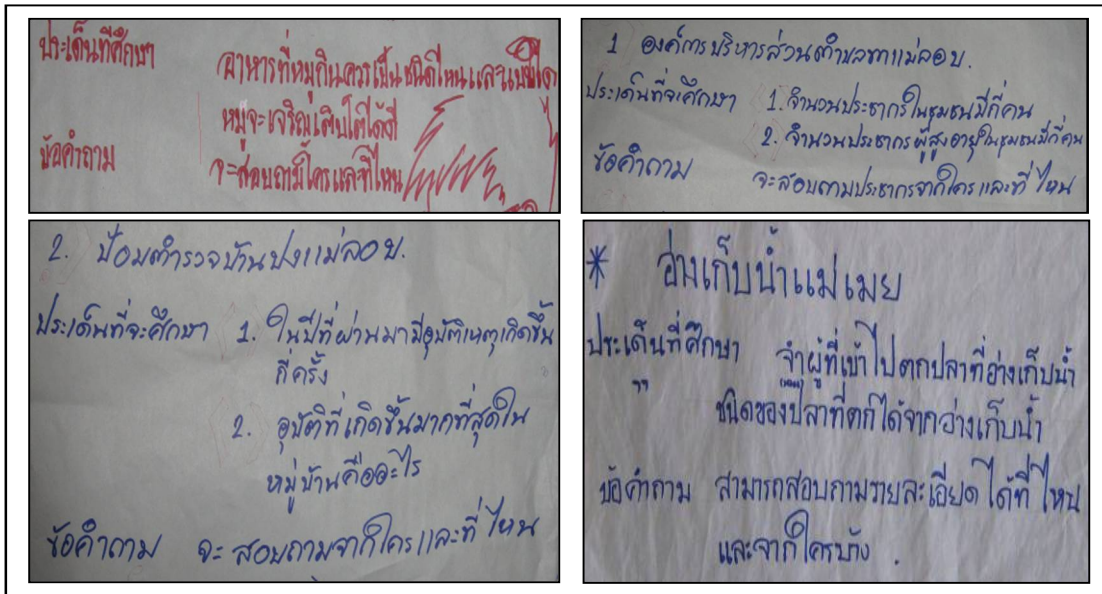 ประเด็นที่ศึกษา อาหารที่หมูกินควรเป็นชนิดไหนและแบบใด
หมูจะเจริญเติบโตได้ดี
ข้อคำถาม จะสอบถามใครและที่ไหน
1 องค์การบริหารส่วนตำบลทาแม่ลอบ.
ประเด็นที่จะศึกษา 1. จำนวนประชากรในชุมชนมีกี่คน
2. จำนวนประชากรผู้สูงอายุในชุมชนมีกี่คน
ข้อคำถาม จะสอบถามประชากรจากใครและที่ไหน
2. ป้อมตำรวจบ้านปงแม่ลอบ.
ประเด็นที่จะศึกษา 1. ในปีที่ผ่านมามีอุบัติเหตุเกิดขึ้น
กี่ครั้ง
2. อุบัติที่เกิดขึ้นมากที่สุดใน
หมู่บ้านคืออะไร
ข้อคำถาม จะสอบถามจากใครและที่ไหน
* อ่างเก็บน้ำแม่เมย
ประเด็นที่ศึกษา ผู้ที่เข้าไปตกปลาที่อ่างเก็บน้ำ
ชนิดของปลาที่ตกได้จากอ่างเก็บน้ำ
ข้อคำถาม สามารถสอบถามรายละเอียดได้ที่ไหน
และจากใครบ้าง .